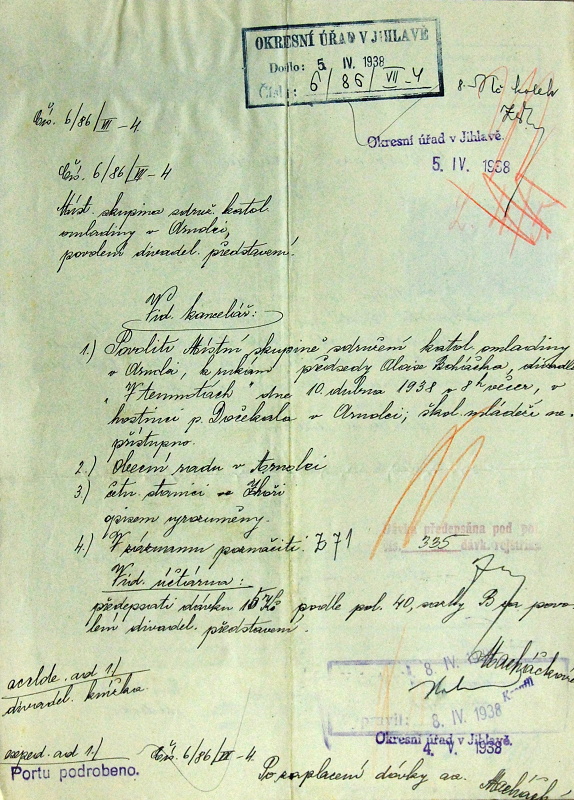 OKRESNÍ ÚŘAD V JIHLAVĚ
Došlo: 5. IV. 1938
Číslo: 6/86/VII-4
8.- Kč kolek
Okresní úřad v Jihlavě.
5. IV. 1938
Čís. 6/86/VII-4.
Čís. 6/86/VII-4
Míst. skupina sdruž. katol.
omladiny v Arnolci,
povolení divadel. představení.
Vid. kancelář:
1.) Povoliti Místní skupině sdružení katol. omladiny
v Arnolci, k rukám předsedy Aloise Boháčka, divadlo
"V temnotách" dne 10. dubna 1938 v 8h večer, v
hostinci p. Dočekala v Arnolci; škol. mládeži ne-
přístupno.
2.) Obecní radu v Arnolci
3.) četn. stanici ve Zhoři
opisem vyrozuměny.
4.) V záznamu poznačiti. Z 71
Dávka předepsána pod pol.
335 dávk. rejstříku
Vid. účtárna:
předepsati dávku 10 Kč podle pol. 40, sazby B za povo-
lení divadel. představení.
8. IV.
Macháčková
8. IV. 1938
Okresní úřad v Jihlavě.
4. V. 1938
ad 1./
divadel. knížka
exped. ad 1./
Čís. 6/86/VII-4.
Portu podrobeno.
Po zaplacení dávky